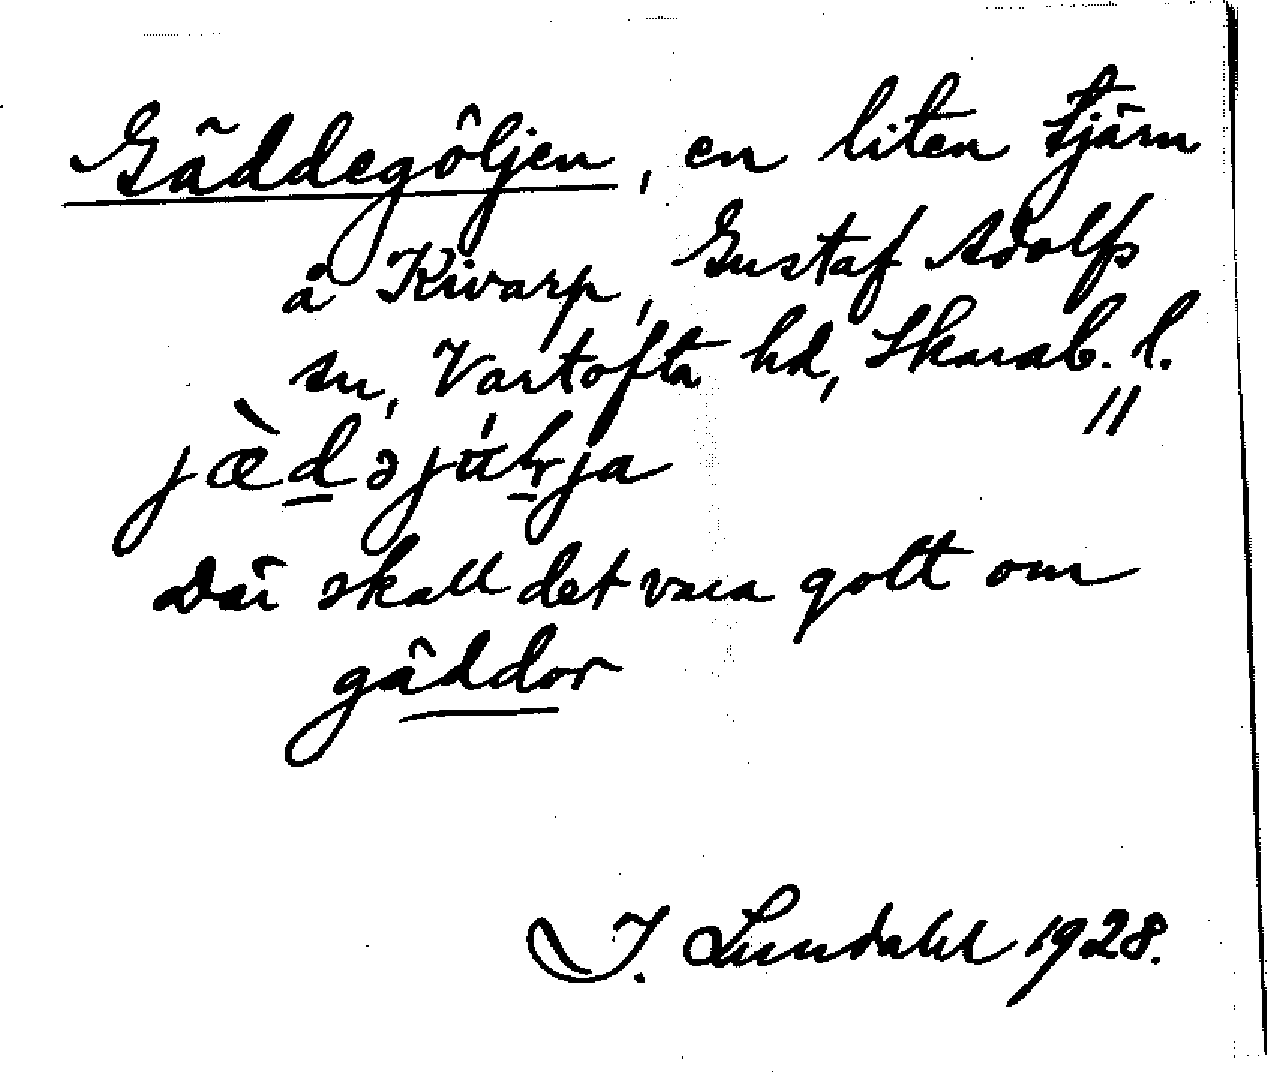 Gäddegöljen, en liten tjärn
å Kivarp, Gustaf Adolfs
sn, Vartofta hd, Skarab. l.
jæ̀d̠əjʉ̍lrja
Där skall det vara gott om
gäddor
I. Lundahl 1928.